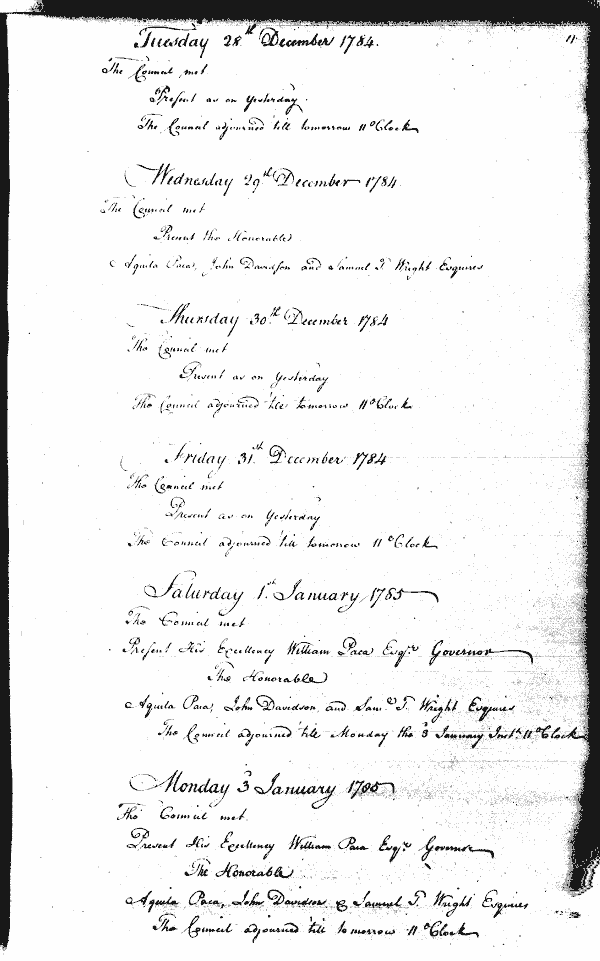 11
Tuesday 28th December 1784.
The Council met
Present as on Yesterday.
The Council adjourned till tomorrow 11 oClock
Wednesday 29th December 1784.
The Council met
Present the Honorable
Aquila Paca, John Davidson and Samuel T. Wright Esquires
Thursday 30th December 1784
The Council met
Present as on Yesterday
The Council adjourned till tomorrow 11 oClock
Friday 31st December 1784
The Council met
Present as on Yesterday
The Council adjourned till tomorrow 11 oClock
Saturday 1st January 1785
The Council met
Present His Excellency William Paca Esqr. Governor
The Honorable
Aquila Paca, John Davidson, and Saml. T. Wright Esquires
The Council adjourned till Monday the 3 January Inst. 11 oClock
Monday 3 January 1785
The Council met.
Present His Excellency William Paca Esqr. Governor
The Honorable
Aquila Paca, John Davidson & Samuel T. Wright Esquires
The Council adjourned till tomorrow 11 oClock